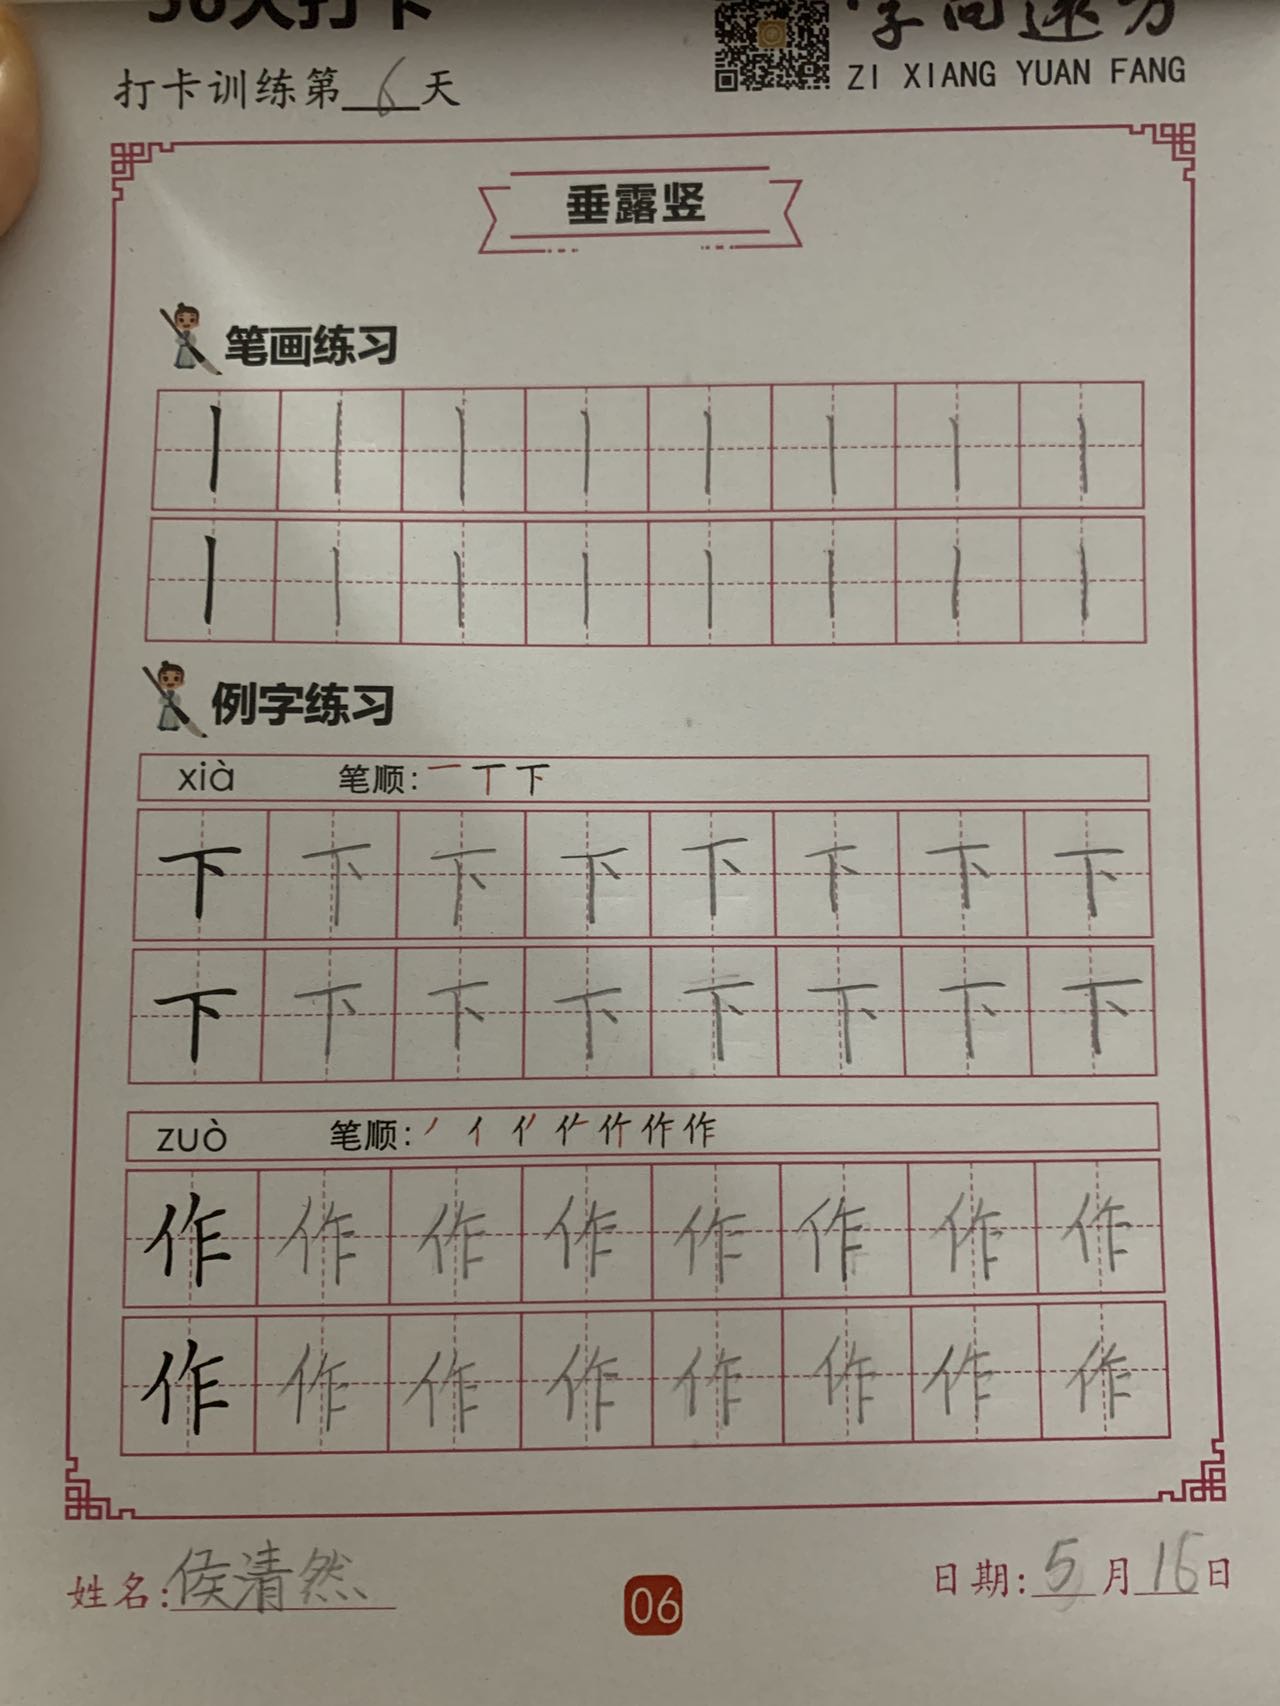 打卡训练第6天
ZI XIANG YUAN FANG
垂露竖
笔画练习
丨丨丨丨丨丨丨丨
丨丨丨丨丨丨丨丨
例字练习
xià 笔顺: 一 丅 下
下下下下下下下下
下下下下下下下下
zuò 笔顺: 作
作作作作作作作作
作作作作作作作作
姓名:侯清然
06
日期:5月16日